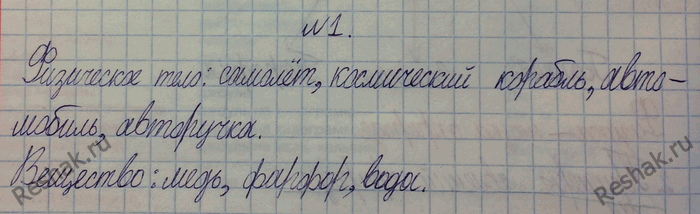 №1.
Физическое тело: самолёт, космический корабль, авто-
мобиль, авторучка.
Вещество: медь, фарфор, вода.
Reshak.ru
Reshak.ru